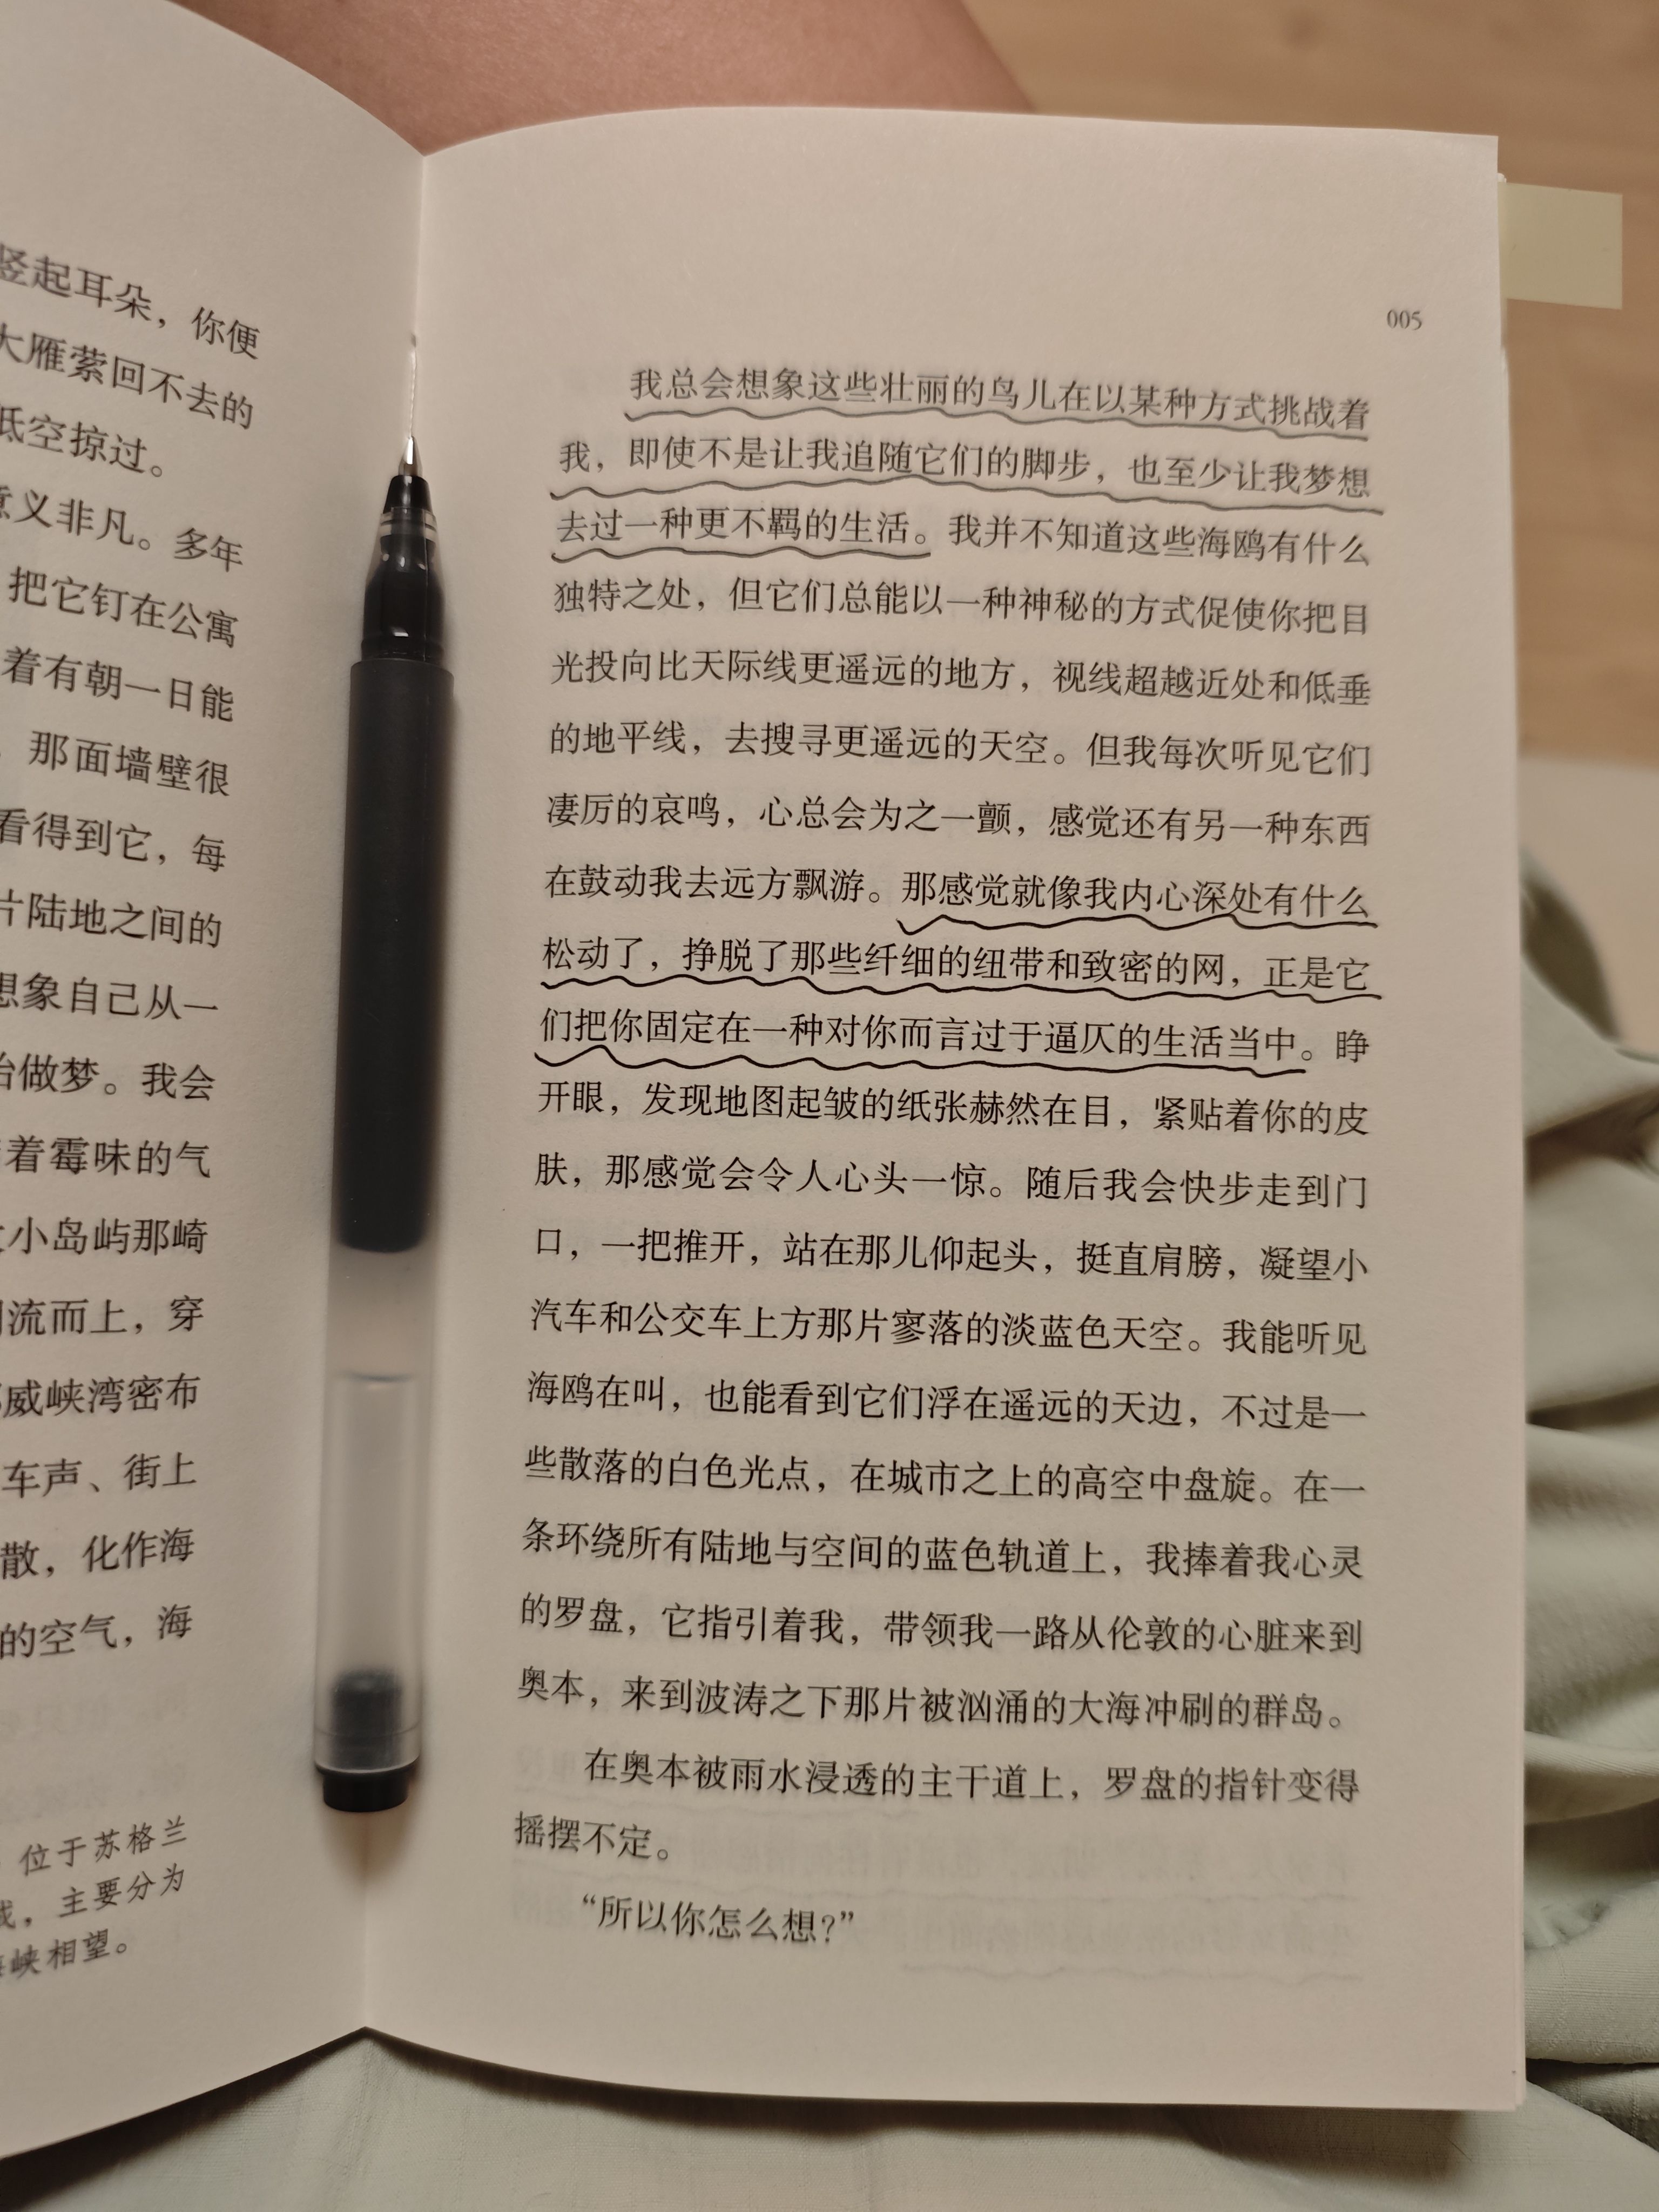 竖起耳朵，你便
大雁萦回不去的
低空掠过。
意义非凡。多年
把它钉在公寓
着有朝一日能
，那面墙壁很
看得到它，每
片陆地之间的
想象自己从一
始做梦。我会
着霉味的气
小岛屿那崎
流而上，穿
威峡湾密布
车声、街上
散，化作海
的空气，海
位于苏格兰
，主要分为
海峡相望。
005
我总会想象这些壮丽的鸟儿在以某种方式挑战着
我，即使不是让我追随它们的脚步，也至少让我梦想
去过一种更不羁的生活。我并不知道这些海鸥有什么
独特之处，但它们总能以一种神秘的方式促使你把目
光投向比天际线更遥远的地方，视线超越近处和低垂
的地平线，去搜寻更遥远的天空。但我每次听见它们
凄厉的哀鸣，心总会为之一颤，感觉还有另一种东西
在鼓动我去远方飘游。那感觉就像我内心深处有什么
松动了，挣脱了那些纤细的纽带和致密的网，正是它
们把你固定在一种对你而言过于逼仄的生活当中。睁
开眼，发现地图起皱的纸张赫然在目，紧贴着你的皮
肤，那感觉会令人心头一惊。随后我会快步走到门
口，一把推开，站在那儿仰起头，挺直肩膀，凝望小
汽车和公交车上方那片寥落的淡蓝色天空。我能听见
海鸥在叫，也能看到它们浮在遥远的天边，不过是一
些散落的白色光点，在城市之上的高空中盘旋。在一
条环绕所有陆地与空间的蓝色轨道上，我捧着我心灵
的罗盘，它指引着我，带领我一路从伦敦的心脏来到
奥本，来到波涛之下那片被汹涌的大海冲刷的群岛。
在奥本被雨水浸透的主干道上，罗盘的指针变得
摇摆不定。
“所以你怎么想？”